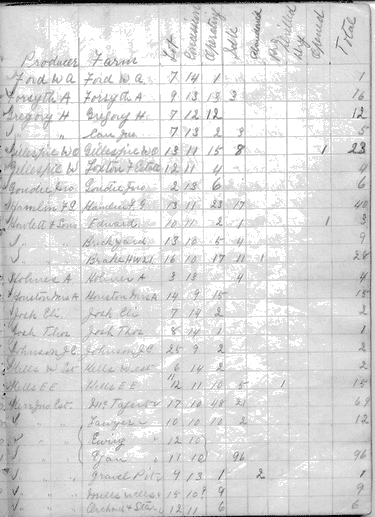 Producer Farm Lot Concession Operating Sold Abandoned Drilled Dry Opened Total
Ford W A Ford W A 7 14 1 1
Forsyth A Forsyth A 9 13 13 3 16
Gregory H Gregory H 7 12 12 12
" " 7 13 2 3 5
Gillespie W O Gillespie W O 13 11 15 8 1 23
Gillespie W 12 11 4 4
Goudie Jno Goudie Jno 2 13 6 6
Hamlin F G Hamlin F G 13 11 23 17 40
Hewlett & Sons Edward 10 11 2 1 1 3
" " Brickyard 13 10 5 4 9
" " Brake 16 10 17 11 1 28
Holmes A Holmes A 3 13 4 4
Houston Mrs A Houston Mrs A 14 9 15 15
Josh Eli Josh Eli 7 14 2 2
Josh Thos Josh Thos 8 14 1 1
Johnson J C Johnson J C 25 9 2 2
Kells W Est Kells W Est 6 14 2 2
Kells E E Kells E E 12 11 10 5 1 15
Kerr Jno Est. 17 10 48 21 69
" " Sawyer 10 10 10 2 12
" " Ewing 12 10
" " 11 10 96 96
" " Gravel Pit 9 13 1 2 1
" " 15 10 9 9
" " Orchard & 12 11 6 6